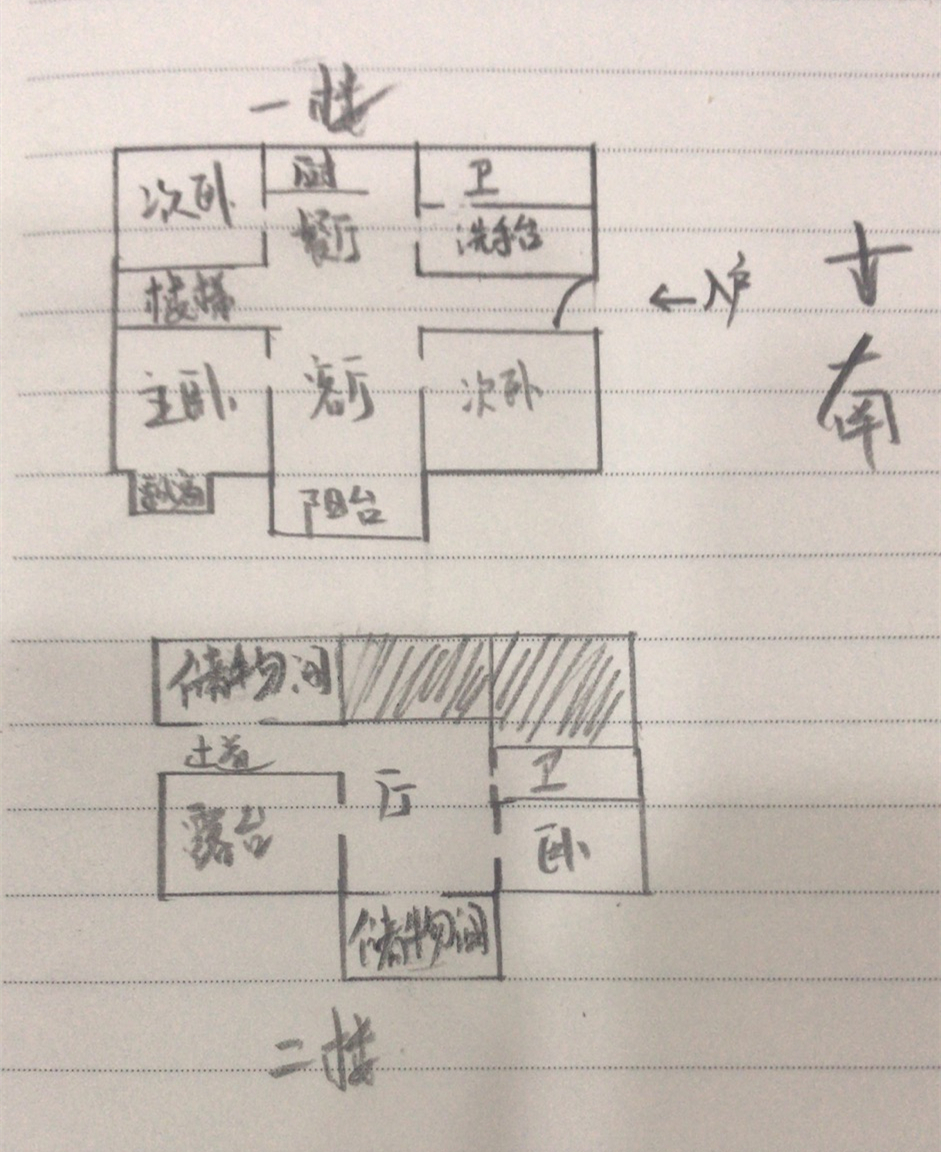 一楼
次卧
厨
卫
餐厅
洗手台
楼梯
←入户
主卧
客厅
次卧
南
飘窗
阳台
储物间
过道
厅
卫
露台
卧
储物间
二楼